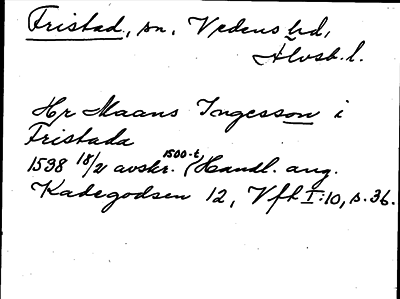 Fristad, sn, Vedens hd,
Älvsb. l.
Hr Maans Ingesson i
Fristada
1538 18/2 avskr. 1500-t (Handl. ang.
Kadegodsen 12, Vfl I:10, s. 36.